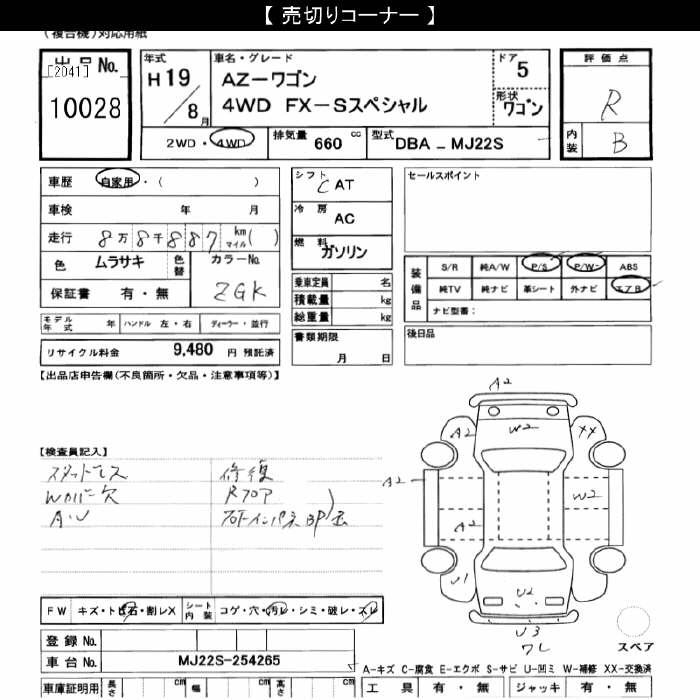 【 売切りコーナー 】
(複合機)対応用紙
出品No.
[2041]
10028
年式
H19/8月
車名・グレード
AZーワゴン
4WD FXーSスペシャル
ドア
5
形状
ワゴン
評価点
R
内装
B
2WD・4WD
排気量 660 cc
型式 DBA － MJ22S
車歴 自家用・( )
車検 年 月
走行 8万8千887 km マイル( )
色 ムラサキ 色替
カラーNo. ZGK
保証書 有・無
シフト CAT
冷房 AC
燃料 ガソリン
乗車定員 名
積載量 kg
総重量 kg
書類期限
月 日
セールスポイント
装備品
S/R 純A/W P/S P/W ABS
純TV 純ナビ 革シート 外ナビ エアB
ナビ型番：
後日品
モデル年式 年 ハンドル 左・右 ディーラー・並行
リサイクル料金 9,480 円 預託済
【出品店申告欄(不良箇所・欠品・注意事項等)】
【検査員記入】
スタットレス 修復
Wカバー欠 Rフロア
A・U
A2
A2
W2
XX
A2
W2
A2
U1
U2
U3
ワレ
スペア
FW キズ・トビ石・割レX
シート内装 コゲ・穴・汚レ・シミ・破レ・スレ
登録No.
車台No. MJ22S-254265
A-キズ C-腐食 E-エクボ S-サビ U-凹ミ W-補修 XX-交換済
車庫証明用 長さ cm 幅 cm 高さ cm
工具 有・無 ジャッキ 有・無